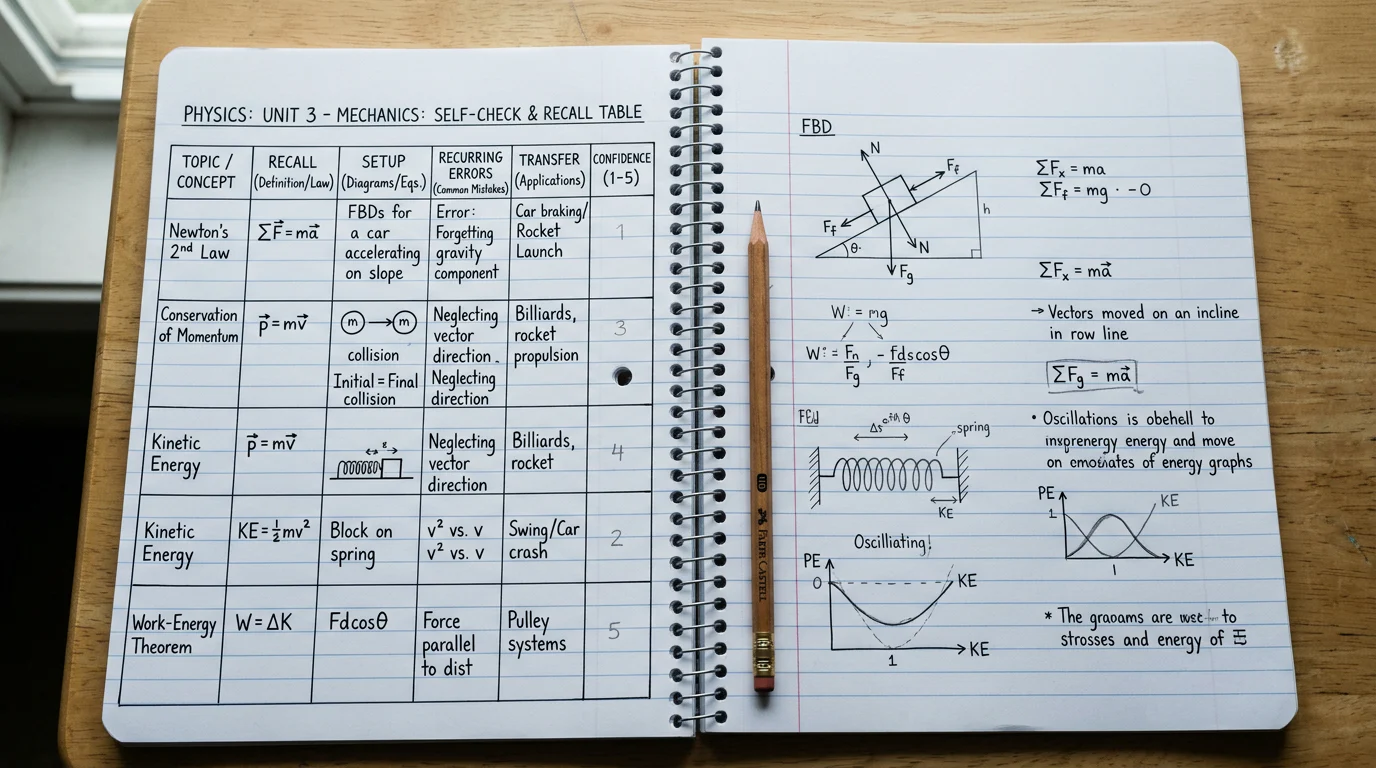 PHYSICS: UNIT 3 - MECHANICS: SELF-CHECK & RECALL TABLE
TOPIC / CONCEPT
RECALL (Definition/Law)
SETUP (Diagrams/Eqs.)
RECURRING ERRORS (Common Mistakes)
TRANSFER (Applications)
CONFIDENCE (1-5)
Newton's
2nd Law
ΣF⃗ = ma⃗
FBDs for
a car
accelerating
on slope
Error:
Forgetting
gravity
component
Car braking/
Rocket
Launch
1
Conservation
of Momentum
p⃗ = mv⃗
m → m
collision
Initial = Final
collision
Neglecting
vector
direction.
Neglecting
direction
Billiards,
rocket
propulsion
3
Kinetic
Energy
p⃗ = mv⃗
Neglecting
vector
direction
Billiards,
rocket
4
Kinetic
Energy
KE = ½mv²
Block on
spring
v² vs. v
v² vs. v
Swing/Car
crash
2
Work-Energy
Theorem
W = ΔK
Fdcosθ
Force
parallel
to dist
Pulley
systems
5
FBD
N
Ff
h
Ff
θ
N
Fg
W = mg
Fn
Fg
- fdscosθ
Ff
Δs
spring
KE
Oscilliating!
PE
0
KE
1
KE
ΣFx = ma
ΣFf = mg · -0
ΣFx = ma⃗
→ Vectors moved on an incline
in row line
ΣFg = ma⃗
• Oscillations is obehell to
energy and move
on of energy graphs
PE
KE
1
1
KE
* The are to
strosses and energy of
FABER CASTELL